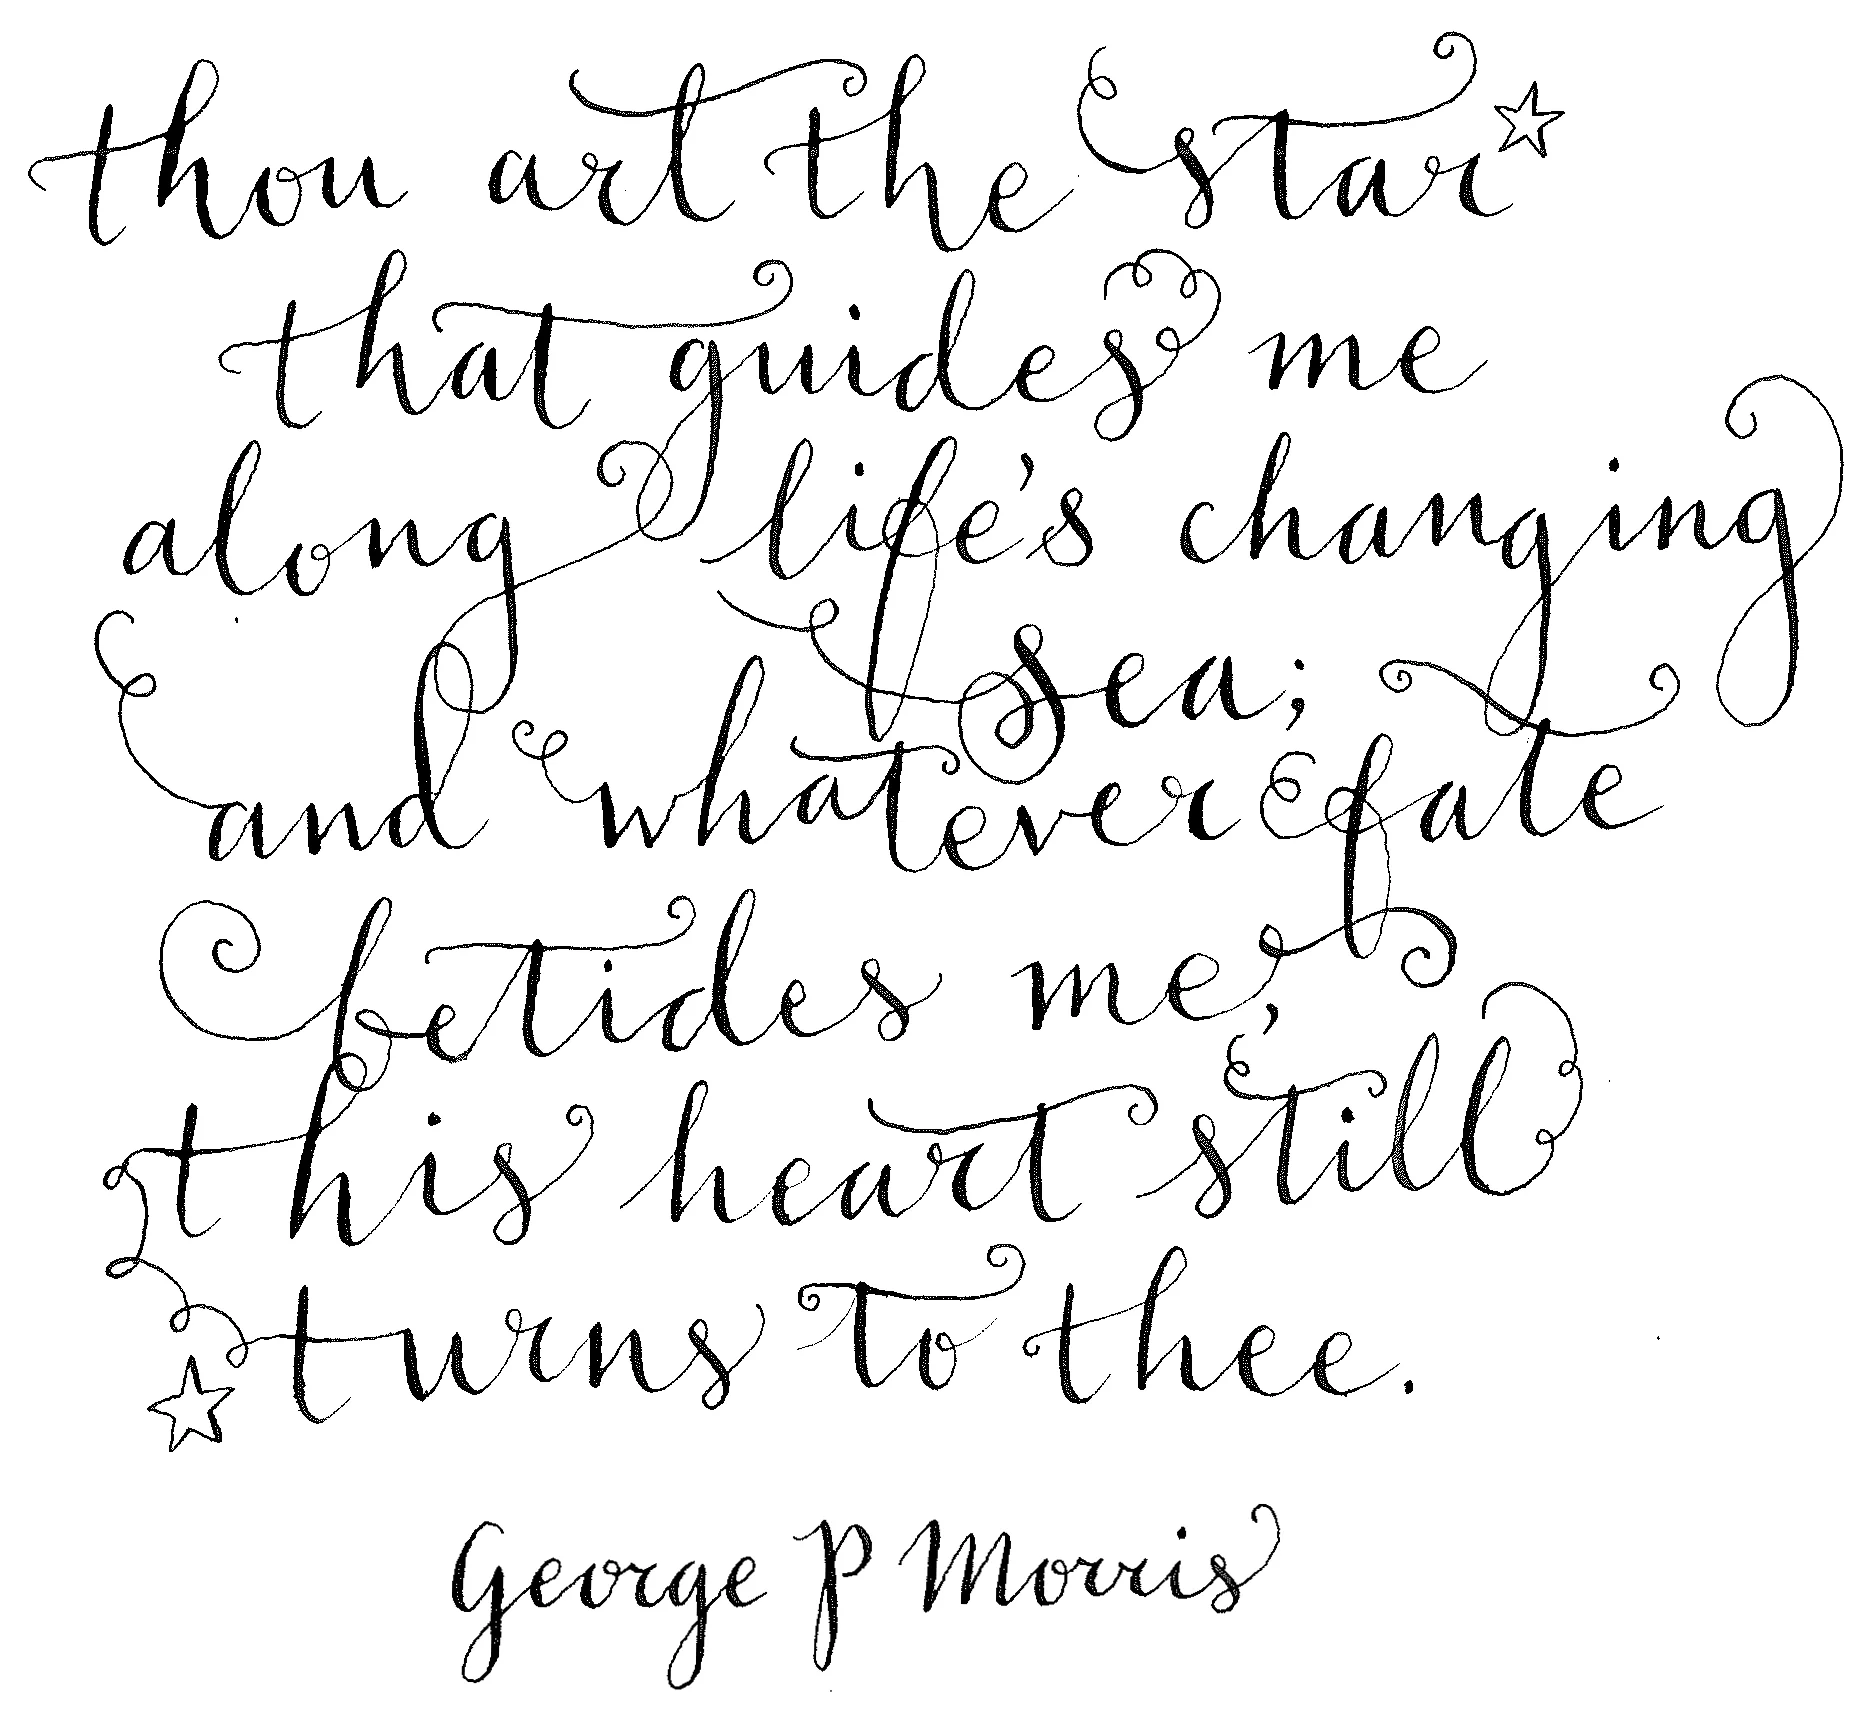 thou art the star
that guides me
along life's changing
sea;
and whatever fate
betides me,
this heart still
turns to thee.
George P Morris